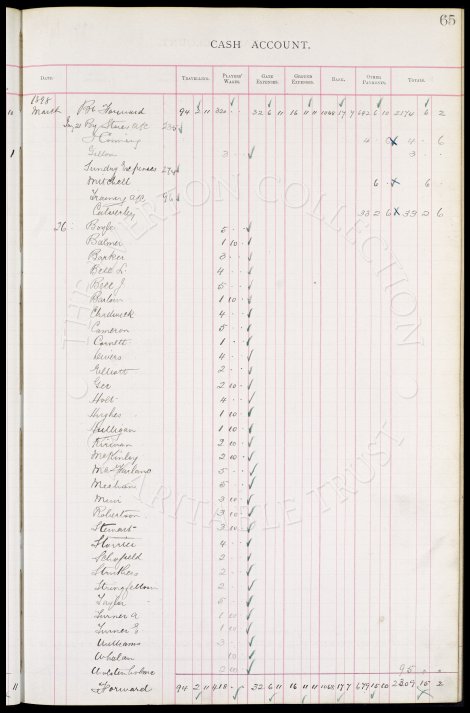 65
CASH ACCOUNT.
DATE. TRAVELLING. PLAYERS' WAGES. GATE EXPENSES. GROUND EXPENSES. BANK. OTHER PAYMENTS. TOTALS.
1898
March Bt Forward 94 2 11 320 32 6 11 16 11 11 1068 17 7 642 6 10 2174 6 2
By Stores a/c
J Conway 4 6 4 6
Gillow 3 3
Sundry Expenses 274
Mitchell 6 6
Training a/c 96
Culverley 33 2 6 33 2 6
26 Boyle 5
Balmer 1 10
Barker 3
Bell L. 4
Bell J 5
Barlow 1 10
Chadwick 4
Cameron 5
Cornett 1
Divers 4
Elliott 2
Gee 2 10
Holt 4
Hughes 1 10
Hulligan 1 10
Kirwan 2 10
McKinlay 2 10
Macfarlane 5
Meehan 5
Muir 3 10
Robertson 3 10
Stewart 3 10
Storrier 4
Schofield 2
Struthers 2
Stringfellow 2
Taylor 5
Turner A 1 10
Turner G 1 10
Williams 3
Whelan 10
Wolstenholme 2 10 95
Forward 94 2 11 418 32 6 11 16 11 11 1068 17 7 679 15 10 2309 15 2
THE EVERTON COLLECTION CHARITABLE TRUST